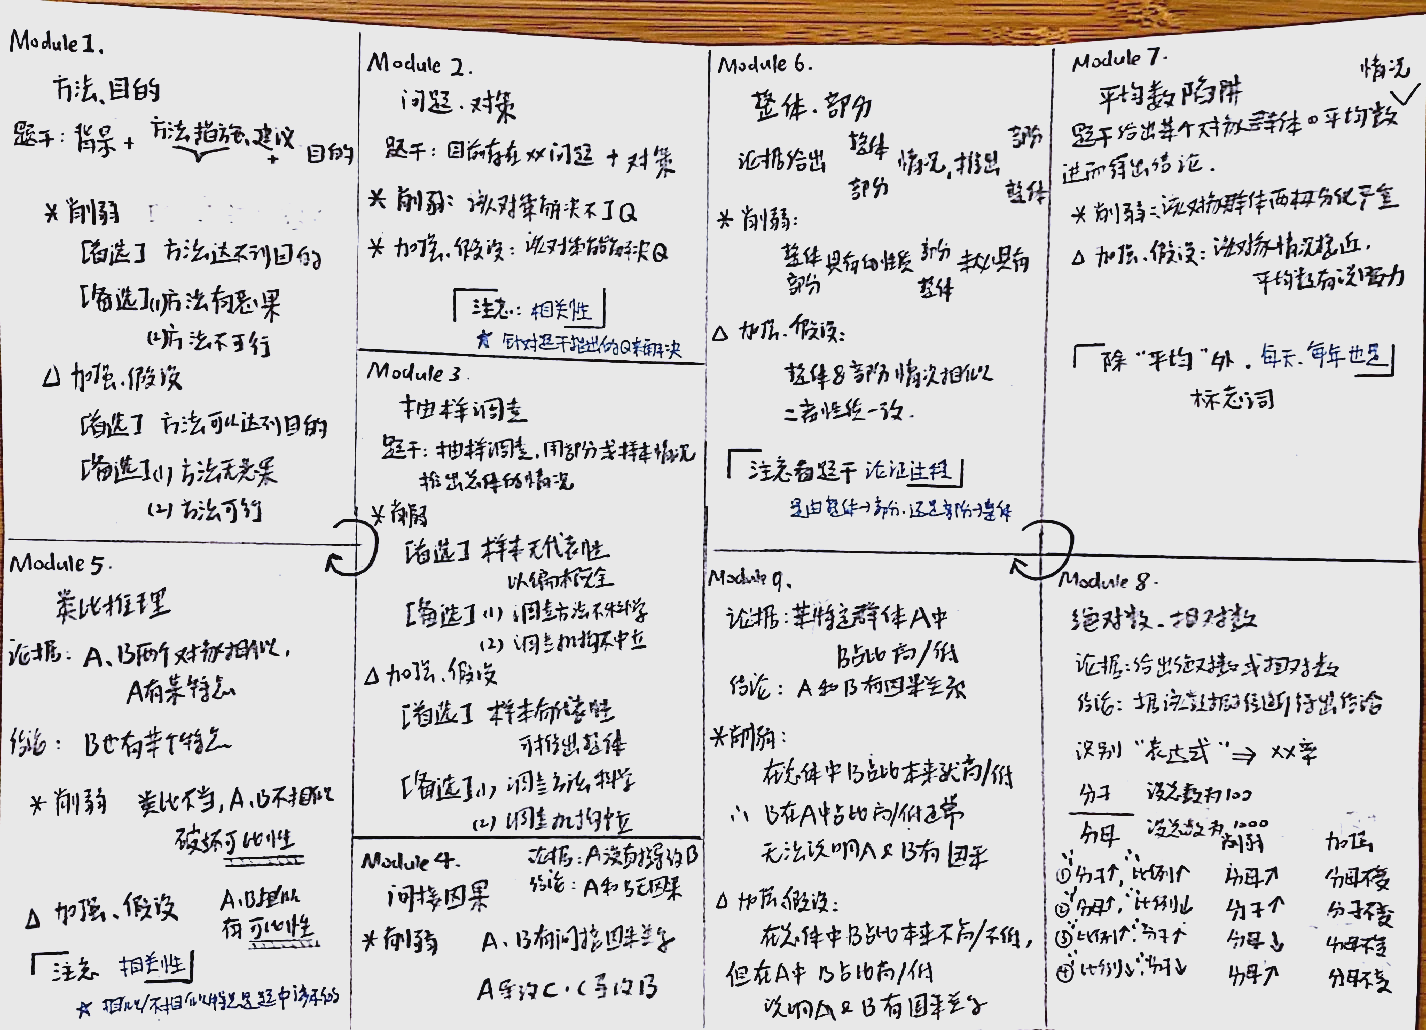 Module 1.
方法、目的
题干: 背景 + 方法措施、建议 + 目的
* 削弱
[首选] 方法达不到目的
[备选] (1) 方法有恶果
(2) 方法不可行
△ 加强、假设
[首选] 方法可以达到目的
[备选] (1) 方法无恶果
(2) 方法可行
Module 2.
问题、对策
题干: 目前存在xx问题 + 对策
* 削弱: 该对策解决不了Q
* 加强、假设: 该对策能解决Q
注意: 相关性
☆ 针对题干指出的Q来解决
Module 3
抽样调查
题干: 抽样调查, 用部分或样本情况
推出总体的情况
* 削弱
[首选] 样本无代表性
以偏概全
[备选] (1) 调查方法不科学
(2) 调查机构不中立
△ 加强、假设
[首选] 样本有代表性
可推出整体
[备选] (1) 调查方法科学
(2) 调查机构中立
Module 4.
间接因果
论据: A没有直接导致B
结论: A和B无因果
* 削弱 A、B有间接因果关系
A导致C, C导致B
Module 5.
类比推理
论据: A、B两个对象相似,
A有某特点
结论: B也有某个特点
* 削弱 类比不当, A、B不相似
破坏可比性
△ 加强、假设 A、B相似
有可比性
注意 相关性
☆ 相似/不相似特点是题中涉及的
Module 6.
整体、部分
论据给出 整体 部分 情况, 推出 部分 整体
* 削弱:
整体 部分 具有的性质 部分 整体 未必具有
△ 加强、假设:
整体&部分情况相似
二者性质一致.
注意看题干 论证过程
是由整体→部分, 还是部分→整体
Module 7.
平均数陷阱
题干给出某个对象/群体の平均数 情况
进而得出结论.
* 削弱: 该对象群体两极分化严重
△ 加强、假设: 该对象情况接近,
平均数有说服力
除“平均”外, 每天、每年也是
标志词
Module 9.
论据: 某特定群体A中
B占比高/低
结论: A和B有因果关系
* 削弱:
在总体中B占比本来就高/低
∴ B在A中占比高/低正常
无法说明A & B有因果
△ 加强、假设:
在总体中B占比本来不高/不低,
但在A中 B占比高/低
说明A & B有因果关系
Module 8.
绝对数、相对数
论据: 给出绝对数或相对数
结论: 据该数据直接得出结论
识别“表达式” ⇒ xx率
分子 设总数为100
分母 设总数为1000
削弱 加强
① 分子↑, 比例↑ 分母↑ 分母不变
② 分母↑, 比例↓ 分子↑ 分子不变
③ 比例↑, 分子↑ 分母↓ 分母不变
④ 比例↓, 分子↓ 分母↑ 分母不变